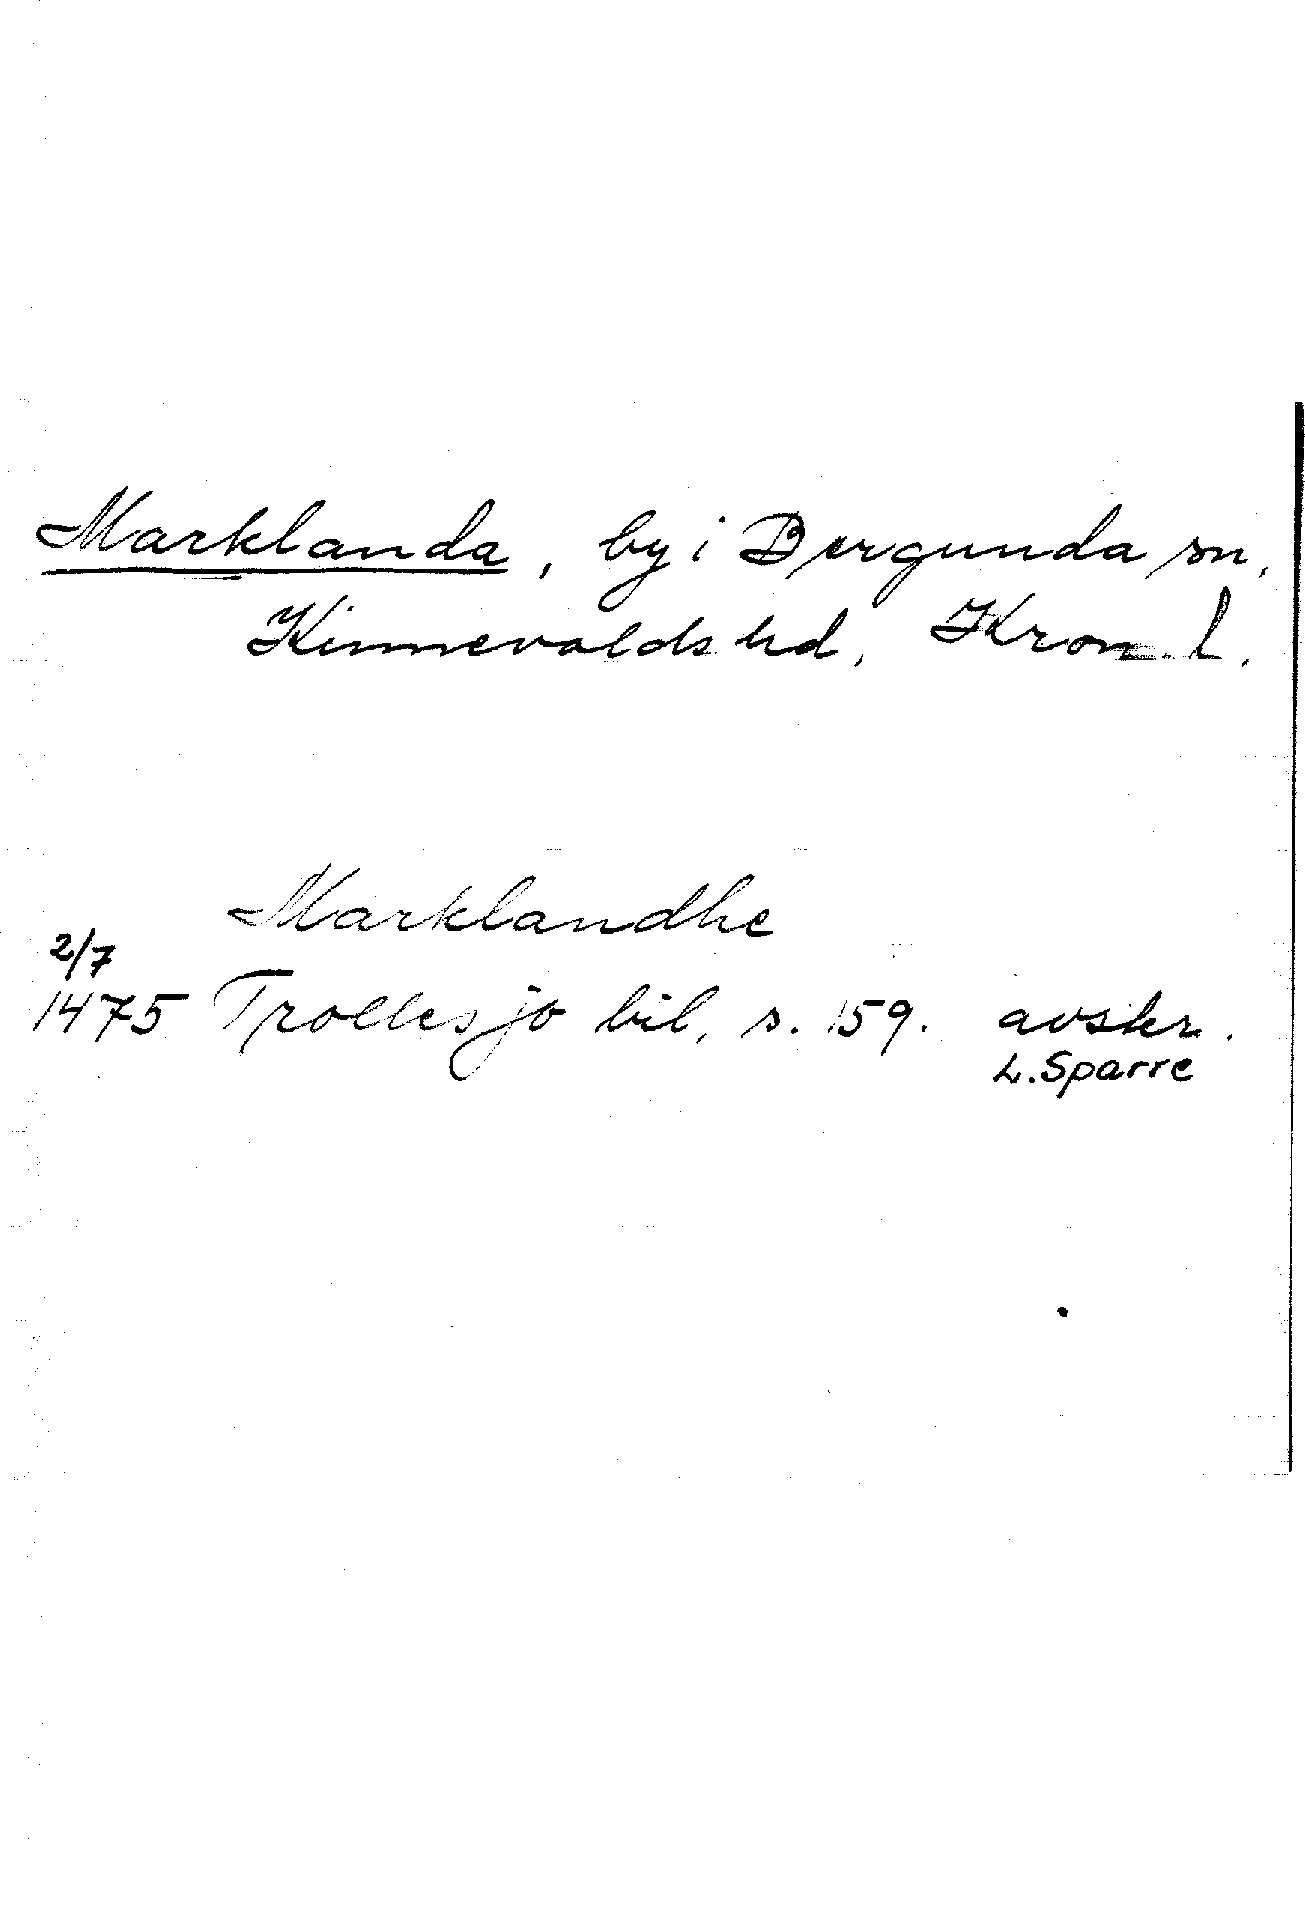 Marklanda, by i Bergunda sn,
Kinnevalds hd, Kron. l.
Marklandhe
2/7
1475 Trollesjö bil, s. 159. avskr.
L. Sparre